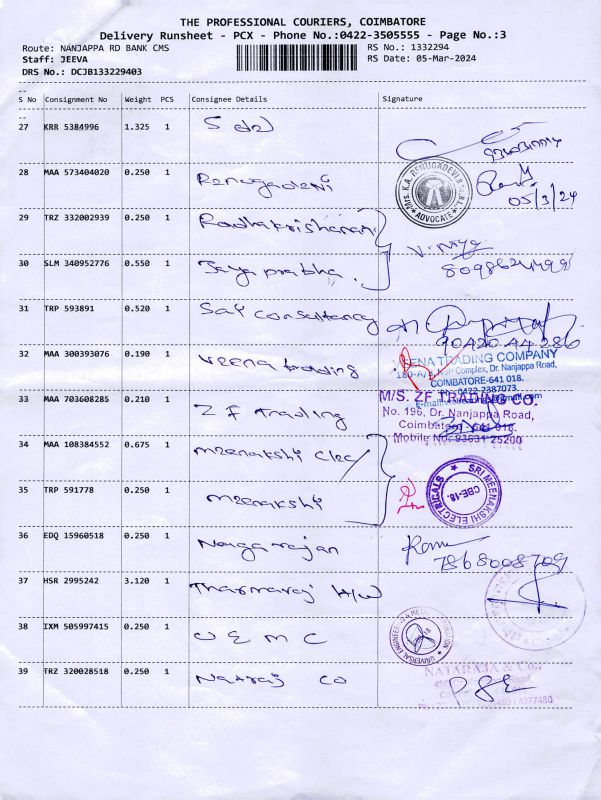 THE PROFESSIONAL COURIERS, COIMBATORE
Delivery Runsheet - PCX - Phone No.:0422-3505555 - Page No.:3
Route: NANJAPPA RD BANK CMS
RS No.: 1332294
Staff: JEEVA
RS Date: 05-Mar-2024
DRS No.: DCJB133229403
S No Consignment No Weight PCS Consignee Details Signature
27 KRR 5384996 1.325 1
28 MAA 573404020 0.250 1 Renugadevi
Mrs. K.A. RENUGADEVI ADVOCATE
05/3/24
29 TRZ 332002939 0.250 1 Radhakrishanan
30 SLM 340952776 0.550 1 Jaya prabha.
31 TRP 593891 0.520 1 Sai Consultancy
90420 44286
32 MAA 300393076 0.190 1 Veena trading
TRADING COMPANY
Complex, Dr. Nanjappa Road,
COIMBATORE-641 018.
33 MAA 703608285 0.210 1 Z F trading
M/S. ZF TRADING CO.
No. 196, Dr. Nanjappa Road,
Coimbatore - 641 018.
Mobile No: 93631 25200
34 MAA 108384552 0.675 1 Meenakshi Elec/
35 TRP 591778 0.250 1 Meenakshi
SRI MEENAKSHI ELECTRICALS CBE-18.
36 EDQ 15960518 0.250 1 Nagarajan
7868008709
37 HSR 2995242 3.120 1 Tharmaraj H/W
38 IXM 505997415 0.250 1 U E M C
39 TRZ 320028518 0.250 1 Nataraj CO
NATARAJA & Co.,